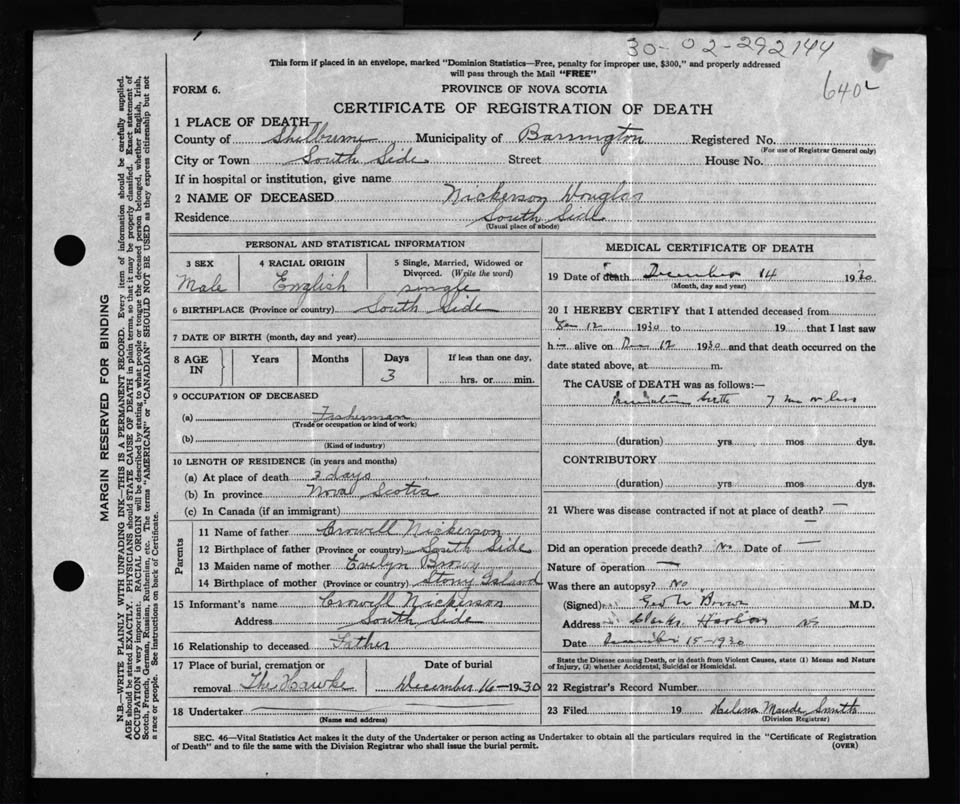 30-02-292144
This form if placed in an envelope, marked "Dominion Statistics—Free, penalty for improper use, $300," and properly addressed
will pass through the Mail "FREE"
640
FORM 6.
PROVINCE OF NOVA SCOTIA
CERTIFICATE OF REGISTRATION OF DEATH
1 PLACE OF DEATH—
County of Shelburne Municipality of Barrington Registered No.
(For use of Registrar General only)
City or Town South Side Street House No.
If in hospital or institution, give name
2 NAME OF DECEASED Nickerson Douglas
Residence South Side
(Usual place of abode)
PERSONAL AND STATISTICAL INFORMATION
3 SEX 4 RACIAL ORIGIN 5 Single, Married, Widowed or
Divorced. (Write the word)
Male English single
6 BIRTHPLACE (Province or country) South Side
7 DATE OF BIRTH (month, day and year)
8 AGE IN Years Months Days If less than one day,
3 hrs. or min.
9 OCCUPATION OF DECEASED
(a) Fisherman
(Trade or occupation or kind of work)
(b)
(Kind of industry)
10 LENGTH OF RESIDENCE (in years and months)
(a) At place of death 3 days
(b) In province Nova Scotia
(c) In Canada (if an immigrant)
Parents
11 Name of father Crowell Nickerson
12 Birthplace of father (Province or country) South Side
13 Maiden name of mother Evelyn Brown
14 Birthplace of mother (Province or country) Stony Island
15 Informant's name Crowell Nickerson
Address South Side
16 Relationship to deceased Father
17 Place of burial, cremation or Date of burial
removal The Hawke December 16 1930
18 Undertaker
(Name and address)
MEDICAL CERTIFICATE OF DEATH
19 Date of death December 14 1930
(Month, day and year)
20 I HEREBY CERTIFY that I attended deceased from
12 1930 to 19 that I last saw
h alive on Dec 12 1930 and that death occurred on the
date stated above, at m.
The CAUSE of DEATH was as follows:—
Premature birth 7 mo or less
(duration) yrs mos dys.
CONTRIBUTORY
(duration) yrs. mos dys.
21 Where was disease contracted if not at place of death? —
Did an operation precede death? No Date of —
Nature of operation —
Was there an autopsy? No
(Signed) Brown M.D.
Address Clarks Harbour NS
Date December 15-1930
State the Disease causing Death, or in death from Violent Causes, state (1) Means and Nature
of Injury, (2) whether Accidental, Suicidal or Homicidal.
22 Registrar's Record Number
23 Filed 19 Helena Maude Smith
(Division Registrar)
SEC. 46—Vital Statistics Act makes it the duty of the Undertaker or person acting as Undertaker to obtain all the particulars required in the "Certificate of Registration
of Death" and to file the same with the Division Registrar who shall issue the burial permit. (OVER)
MARGIN RESERVED FOR BINDING
N.B.—WRITE PLAINLY WITH UNFADING INK—THIS IS A PERMANENT RECORD. Every item of information should be carefully supplied.
AGE should be stated EXACTLY. PHYSICIANS should STATE CAUSE OF DEATH in plain terms, so that it may be properly classified. Exact statement of
OCCUPATION is very important. RACIAL ORIGIN will be described by stating to what people or tongue the deceased person belonged, whether English, Irish,
Scotch, French, German, Russian, Ruthenian, etc. The terms "AMERICAN" or "CANADIAN" SHOULD NOT BE USED as they express citizenship but not
a race or people. See instructions on back of Certificate.